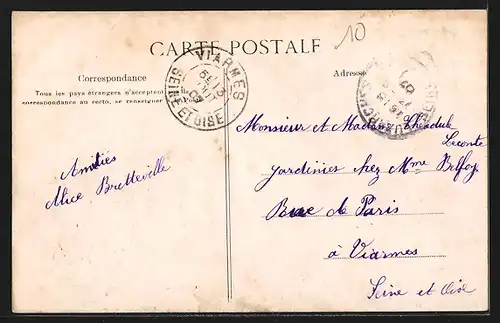 10
CARTE POSTALE
Correspondance
Adresse
Tous les pays étrangers n'acceptent
correspondance au recto, se renseigner
VIARMES
SEINE ET OISE
Monsieur et Madame Théodule
Leconte
Jardinier chez Mme Belfoy
Rue de Paris
à Viarmes
Seine et Oise
Amitiés
Alice Bretteville